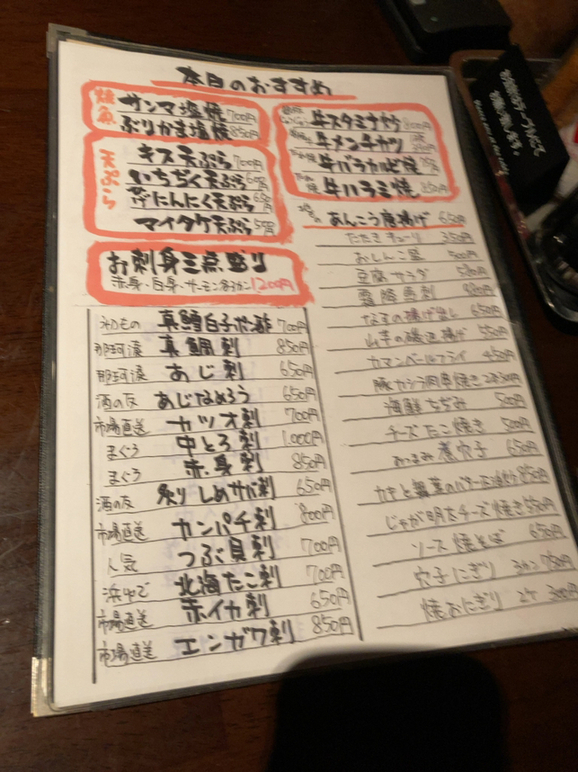 本日のおすすめ
焼魚
サンマ塩焼 700円
ぶりかま塩焼 850円
天ぷら
キス天ぷら 700円
いちぢく天ぷら
芽にんにく天ぷら
マイタケ天ぷら
お刺身三点盛り
赤身・白身・サーモン 1200円
初もの 真鱈白子ポン酢 700円
那珂湊 真鯛刺 850円
那珂湊 あじ刺 650円
酒の友 あじなめろう 650円
市場直送 カツオ刺 700円
まぐろ 中とろ刺 1,000円
まぐろ 赤身刺 850円
酒の友 炙りしめサバ刺 650円
市場直送 カンパチ刺 800円
人気 つぶ貝刺 700円
浜ゆで 北海たこ刺 700円
市場直送 赤イカ刺 650円
市場直送 エンガワ刺 850円
牛スタミナ焼 800円
牛メンチカツ
牛バラカルビ焼
牛ハラミ焼 850円
あんこう唐揚げ 650円
たたきキューリ 350円
おしんこ盛 500円
豆腐サラダ
霜降馬刺
なすの揚げ出し 650円
山芋の磯辺揚げ 550円
カマンベールフライ 450円
豚カシラ肉串焼き
海鮮ちぢみ 800円
チーズたこ焼き 500円
おつまみ煮穴子 650円
カキと舞茸のバター 850円
じゃが明太チーズ焼き 550円
ソース焼そば 650円
穴子にぎり 3カン 750円
焼おにぎり 2ケ 300円